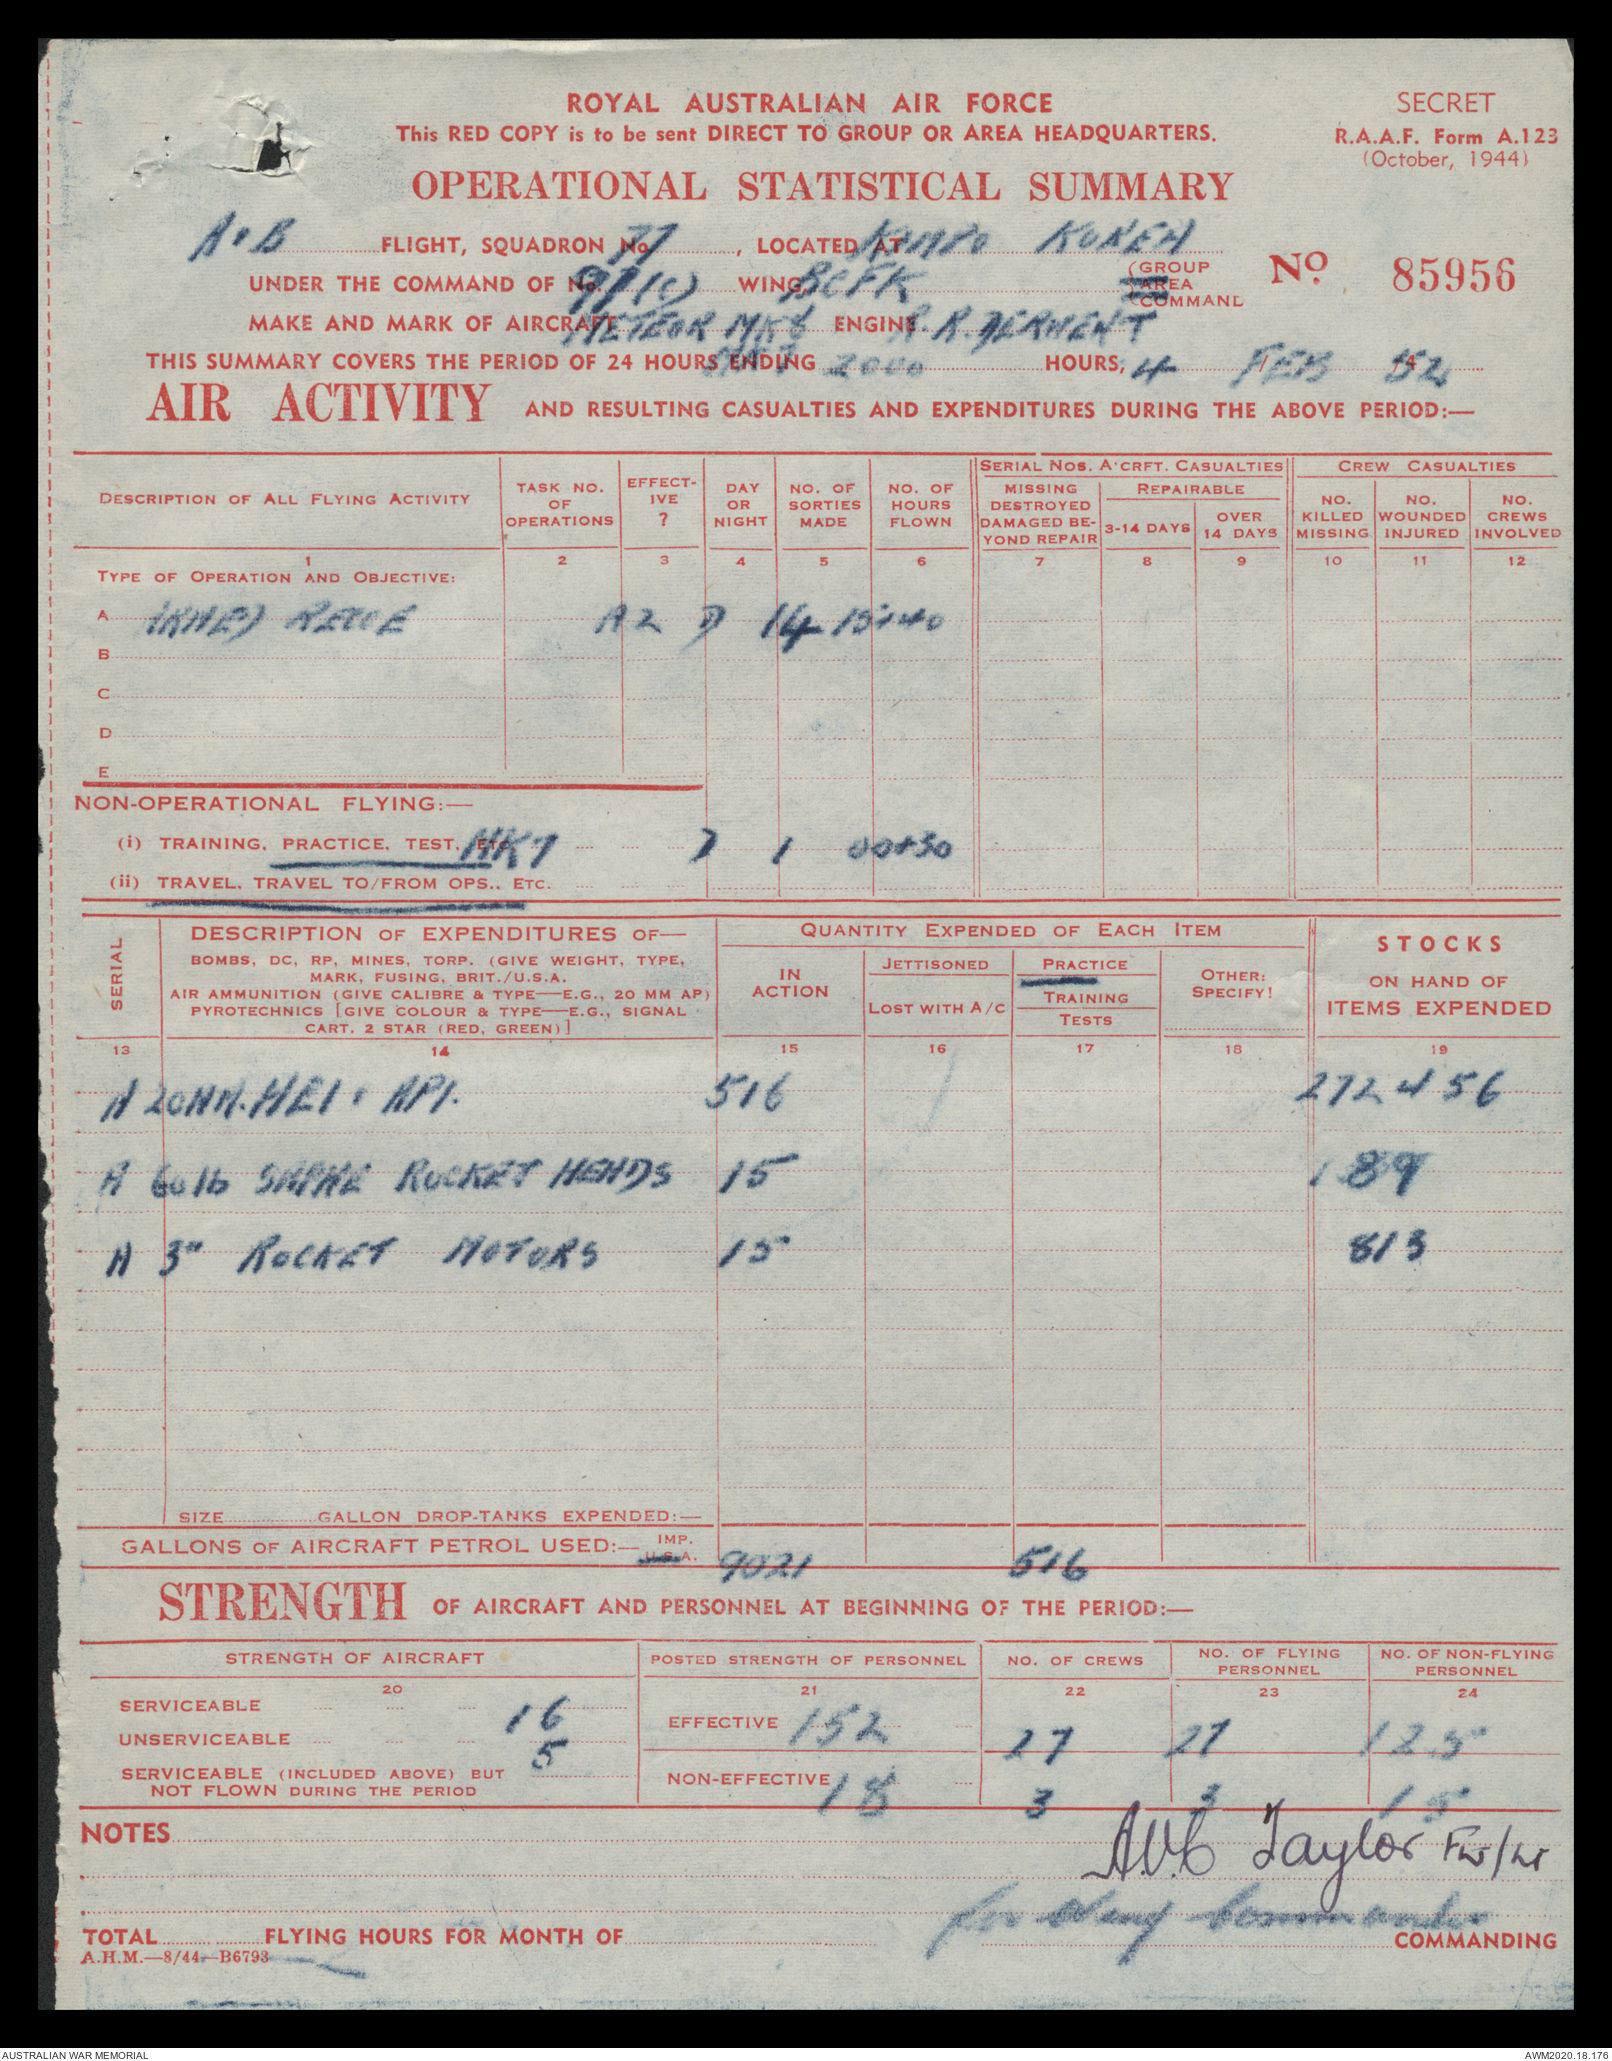 ROYAL AUSTRALIAN AIR FORCE
This RED COPY is to be sent DIRECT TO GROUP OR AREA HEADQUARTERS.
SECRET
R.A.A.F. Form A.123
(October, 1944)
OPERATIONAL STATISTICAL SUMMARY
A & B FLIGHT, SQUADRON No. 77, LOCATED AT KIMPO KOREA
UNDER THE COMMAND OF No. 91 (C) WING, BCFK (GROUP AREA COMMAND
No. 85956
MAKE AND MARK OF AIRCRAFT METEOR MK 8 ENGINE R.R. DERWENT
THIS SUMMARY COVERS THE PERIOD OF 24 HOURS ENDING 2000 HOURS, 4 / FEB / 52
AIR ACTIVITY AND RESULTING CASUALTIES AND EXPENDITURES DURING THE ABOVE PERIOD:—
DESCRIPTION OF ALL FLYING ACTIVITY
TASK NO. OF OPERATIONS
EFFECT-IVE ?
DAY OR NIGHT
NO. OF SORTIES MADE
NO. OF HOURS FLOWN
SERIAL NOS. A'CRFT. CASUALTIES
MISSING DESTROYED DAMAGED BE-YOND REPAIR
REPAIRABLE
3-14 DAYS
OVER 14 DAYS
CREW CASUALTIES
NO. KILLED MISSING
NO. WOUNDED INJURED
NO. CREWS INVOLVED
1 2 3 4 5 6 7 8 9 10 11 12
TYPE OF OPERATION AND OBJECTIVE:
A (ARMED) RECCE A2 D 14 15+40
B
C
D
E
NON-OPERATIONAL FLYING:—
(i) TRAINING, PRACTICE, TEST, ETC. MK7 D 1 00+30
(ii) TRAVEL, TRAVEL TO/FROM OPS., ETC.
SERIAL
DESCRIPTION OF EXPENDITURES OF—
BOMBS, DC, RP, MINES, TORP. (GIVE WEIGHT, TYPE,
MARK, FUSING, BRIT./U.S.A.
AIR AMMUNITION (GIVE CALIBRE & TYPE—E.G., 20 MM AP)
PYROTECHNICS [GIVE COLOUR & TYPE—E.G., SIGNAL
CART. 2 STAR (RED, GREEN)]
QUANTITY EXPENDED OF EACH ITEM
IN ACTION
JETTISONED
LOST WITH A/C
PRACTICE
TRAINING
TESTS
OTHER: SPECIFY!
STOCKS
ON HAND OF
ITEMS EXPENDED
13 14 15 16 17 18 19
A 20MM. HEI & API. 516 272456
A 60 lb SAPHE ROCKET HEADS 15 189
A 3" ROCKET MOTORS 15 813
SIZE GALLON DROP-TANKS EXPENDED:—
GALLONS OF AIRCRAFT PETROL USED:— IMP. U.S.A. 9021 516
STRENGTH OF AIRCRAFT AND PERSONNEL AT BEGINNING OF THE PERIOD:—
STRENGTH OF AIRCRAFT
POSTED STRENGTH OF PERSONNEL
NO. OF CREWS
NO. OF FLYING PERSONNEL
NO. OF NON-FLYING PERSONNEL
20 21 22 23 24
SERVICEABLE 16
UNSERVICEABLE 5
SERVICEABLE (INCLUDED ABOVE) BUT
NOT FLOWN DURING THE PERIOD
EFFECTIVE 152 27 27 125
NON-EFFECTIVE 18 3 3 15
NOTES
A.V.C Taylor Flt/Lt
for Wing Commander
TOTAL FLYING HOURS FOR MONTH OF
COMMANDING
A.H.M.—8/44—B6793
AUSTRALIAN WAR MEMORIAL
AWM2020.18.176